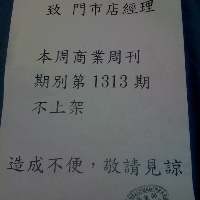 致 門市店經理
本周商業周刊
期別第1313期
不上架
造成不便，敬請見諒